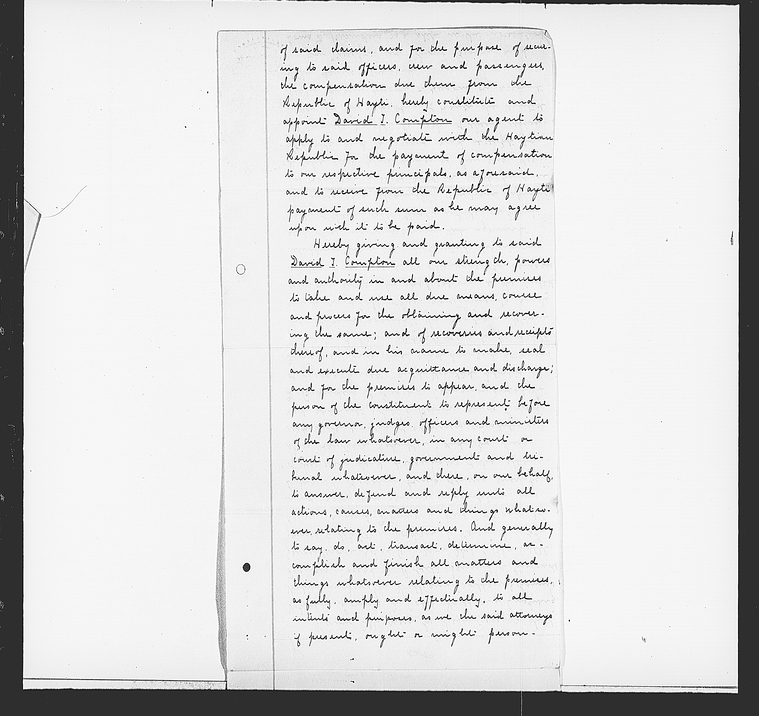 of said claims, and for the purpose of secur-
ing to said officers, crew and passengers,
the compensation due them from the
Republic of Hayti, hereby constitute and
appoint David J. Compton our agent to
apply to and negotiate with the Haytian
Republic for the payment of compensation
to our respective principals, as aforesaid,
and to receive from the Republic of Hayti
payment of such sum as he may agree
upon with it to be paid.
Hereby giving and granting to said
David J. Compton all our strength, powers
and authority in and about the premises
to take and use all due means, course
and process for the obtaining and recover-
ing the same; and of recoveries and receipts
thereof, and in his name to make, seal
and execute due acquittance and discharge;
and for the premises to appear, and the
person of the constituent to represent before
any governor, judges, officers and ministers
of the law whatsoever, in any court or
court of judicature, government and tri-
bunal whatever, and there, on our behalf,
to answer, defend and reply unto all
actions, causes, matters and things whatso-
ever, relating to the premises. And generally
to say, do, act, transact, determine, ac-
complish and finish all matters and
things whatsoever relating to the premises,
as fully, amply and effectually, to all
intents and purposes, as we the said attorneys
if present, ought or might person-